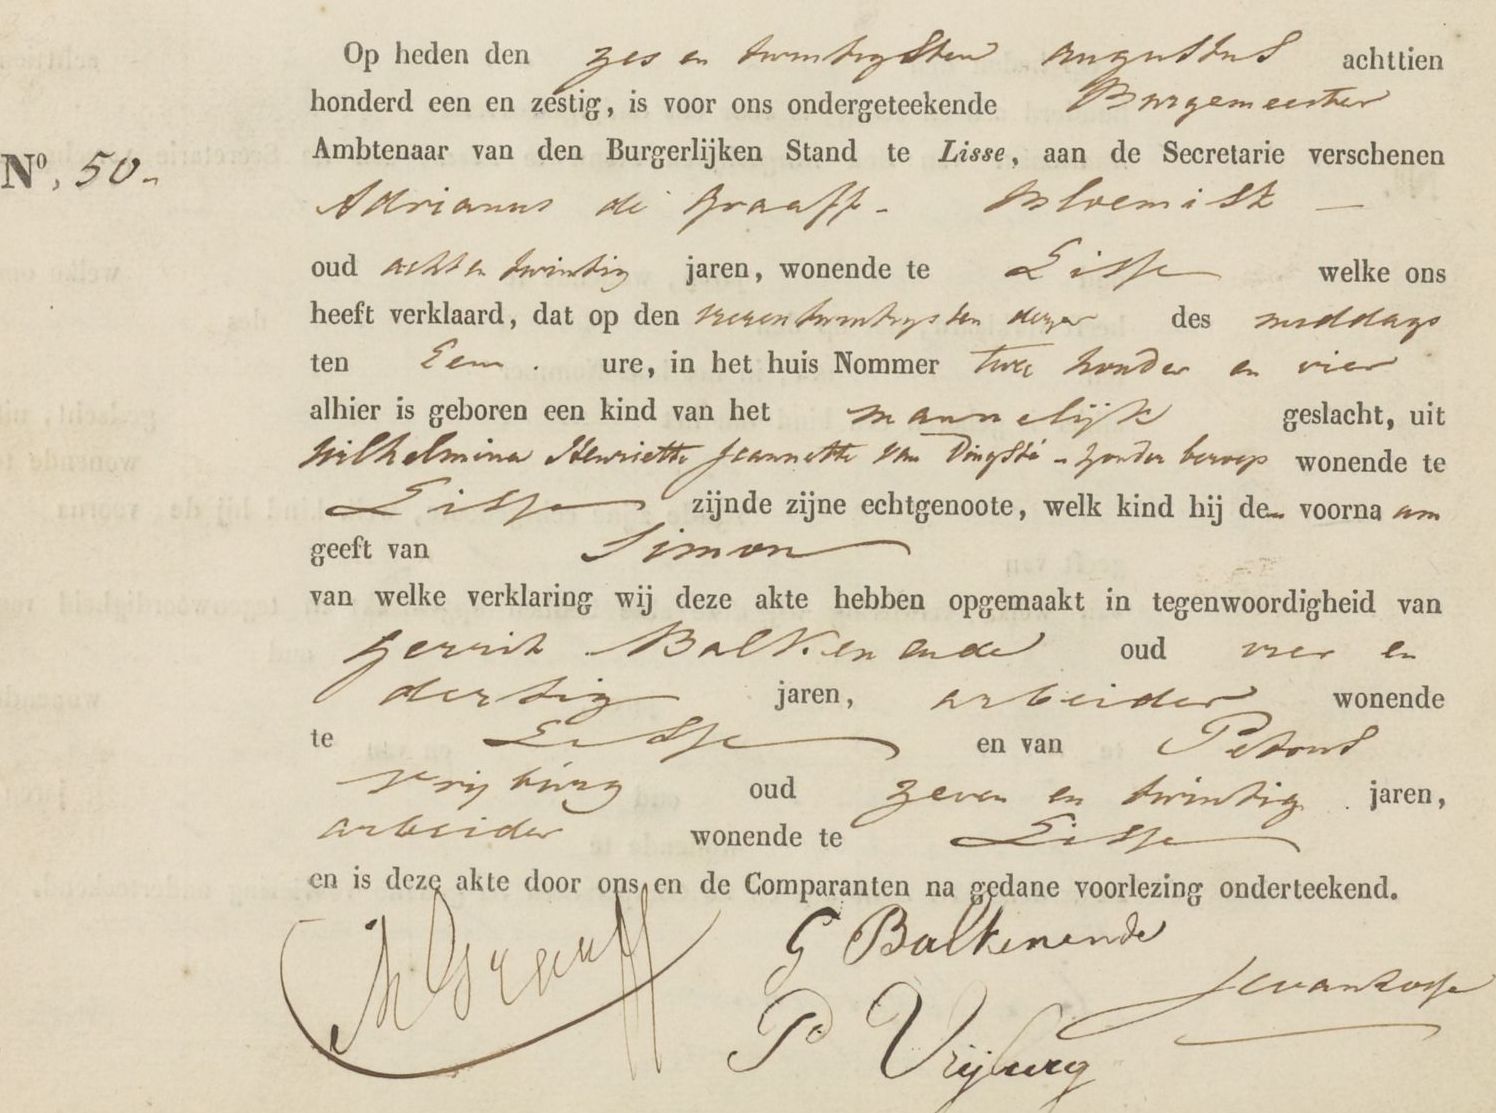 Op heden den zes en twintigsten augustus achttien
honderd een en zestig, is voor ons ondergeteekende Burgemeester
Ambtenaar van den Burgerlijken Stand te Lisse, aan de Secretarie verschenen
Nº. 50.
Adrianus de Graaff - Bloemist -
oud acht en twintig jaren, wonende te Lisse welke ons
heeft verklaard, dat op den vierentwintigsten dezer des middags
ten Een ure, in het huis Nommer twee honder en vier
alhier is geboren een kind van het mannelijk geslacht, uit
Wilhelmina Henriette Jeannette van Dingsté - zonder beroep wonende te
Lisse zijnde zijne echtgenoote, welk kind hij de voornaam
geeft van Simon
van welke verklaring wij deze akte hebben opgemaakt in tegenwoordigheid van
Gerrit Balkenende oud vier en
dertig jaren, arbeider wonende
te Lisse en van Petrus
Vrijburg oud zeven en twintig jaren,
arbeider wonende te Lisse
en is deze akte door ons en de Comparanten na gedane voorlezing onderteekend.
A de Graaff
G Balkenende
JCvanRosse
P Vrijburg